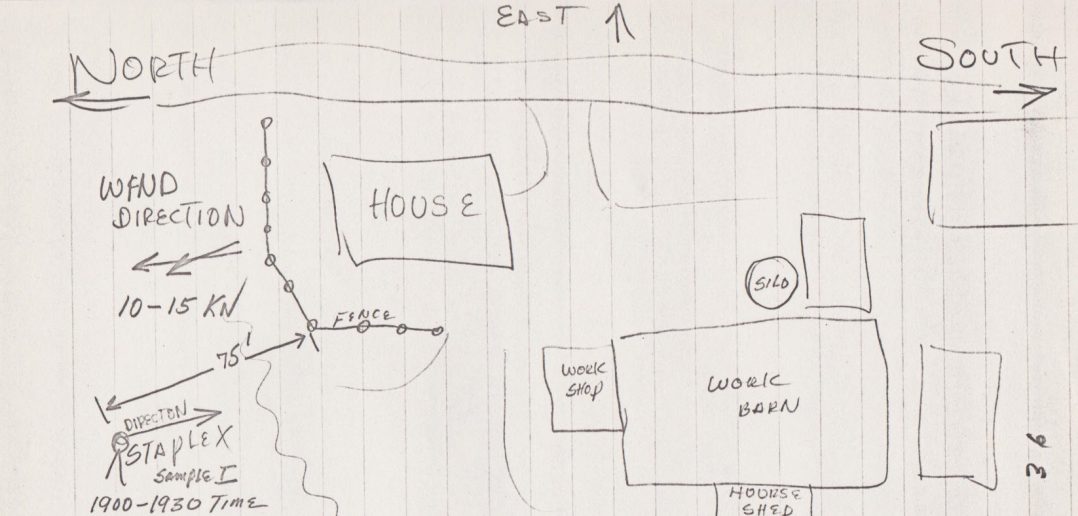 EAST
NORTH
SOUTH
WIND
DIRECTION
10-15 KN
HOUSE
FENCE
75'
SILO
WORK
SHOP
WORK
BARN
DIRECTON
STAPLEX
Sample I
1900-1930 TIME
HOURSE
SHED
36